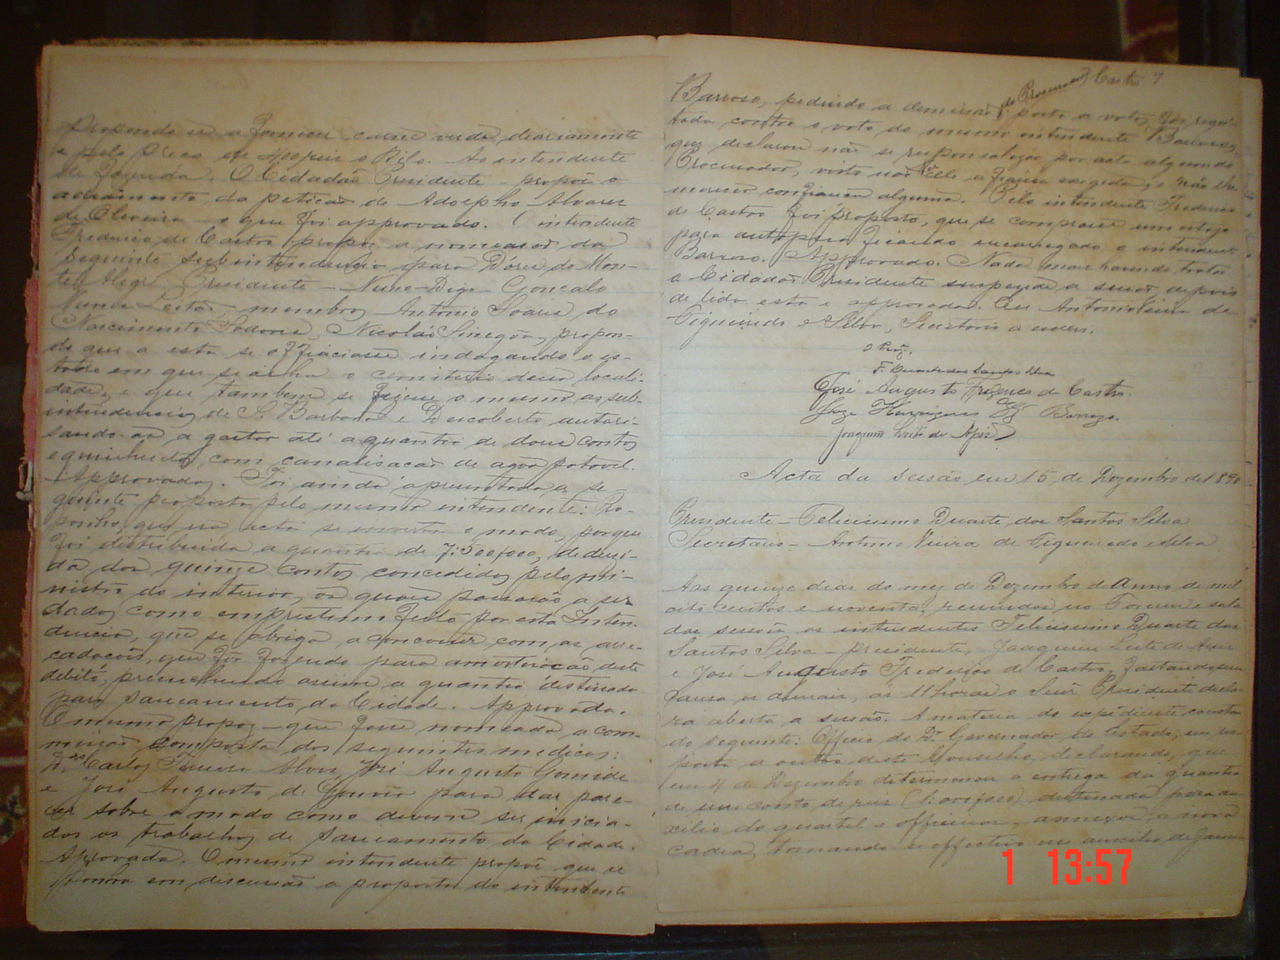 Propondo se a fornecer carne verde diariamente
e pelo preço de reis o Kilo. Ao intendente
de fazenda. O Cidadão Presidente propõe o
adiamento da petição de Adolpho Alvares
de Oliveira o que foi approvado. O intendente
Frederico de Castro propoz a nomeação da
seguinte subintendencia para Dôres do Mon-
te Alegre: Presidente - Gonçalo
Nunes Leitão, membros Antonio Soares do
Nascimento Nicolai propon-
do que a esta se officiasse indagando o es-
tado em que se acha o cemiterio dessa locali-
dade, e que tambem se fizesse o mesmo as sub-
intendencias de S. Barbara e Descoberto autori-
sando as a gastar até a quantia de dous contos
e quinhentos, com canalisação de agoa potavel.
Approvado. Foi ainda apresentada a se-
guinte proposta pelo mesmo intendente: Pro-
ponho que na acta se o modo porque
foi distribuida a quantia de 7:500$000, dedusi-
da dos quinze contos concedidos pelo mi-
nistro do interior, os quaes passarão a ser
dados como emprestimo feito por esta Inten-
dencia, que se obriga a concorrer com as arre-
cadações, que for fazendo para amortisação deste
debito, preenchendo assim a quantia destinada
para saneamento da Cidade. Approvada.
O mesmo propoz que fosse nomeada a com-
missão composta dos seguintes medicos:
Drs Carlos Alves, José Augusto
e José Augusto de Gouvêa para dar pare-
cer sobre o modo como devem ser inicia-
dos os trabalhos de saneamento da Cidade.
Aprovada. O mesmo intendente propõe que se
tome em discussão a proposta do intendente
Castro 7
Barroso, pedindo a demissão do Procurador posta a votos foi regei-
tada contra o voto do mesmo intendente Barroso,
que declarou não se responsalisar por acto algum do
Procurador, visto não a fiança exigida, e não lhe
merecer confiança alguma. Pelo intendente Frederico
de Castro foi proposto, que se comprasse um
para ficando encarregado o intendente
Barroso. Approvado. Nada mais havendo tratar
o Cidadão Presidente suspende a sessão depois
de lida esta e approvada. Eu Antonio Vieira de
Figueiredo e Silva, Secretario a escrevi.
F Duarte dos Santos Silva
José Augusto Frederico de Castro
Joze Henriques Barrozo.
Joaquim Leite de
Acta da sessão em 15 de Dezembro de 1890
Presidente - Felicissimo Duarte dos Santos Silva
Secretario - Antonio Vieira de Figueiredo e Silva
Aos quinze dias do mez de Dezembro do Anno de mil
oito centos e noventa, reunidos no Forum e sala
das sessões os intendentes Felicissimo Duarte dos
Santos Silva - presidente, Joaquim Leite de
e José Augusto Frederico de Castro, faltando, sem
causa os demais, as 11 horas o Snr Presidente decla-
ra aberta a sessão. A materia do expediente consta
do seguinte: Officio do Dr. Governador do Estado, em res-
posta a outro deste Conselho, declarando, que
em 4 de Dezembro determinou a entrega da quantia
de um conto de reis (1:000$000) destinada para au-
xilio do quartel e officinas, annexos a nova
cadea, tornando se effectivo no de Janei
1 13:57